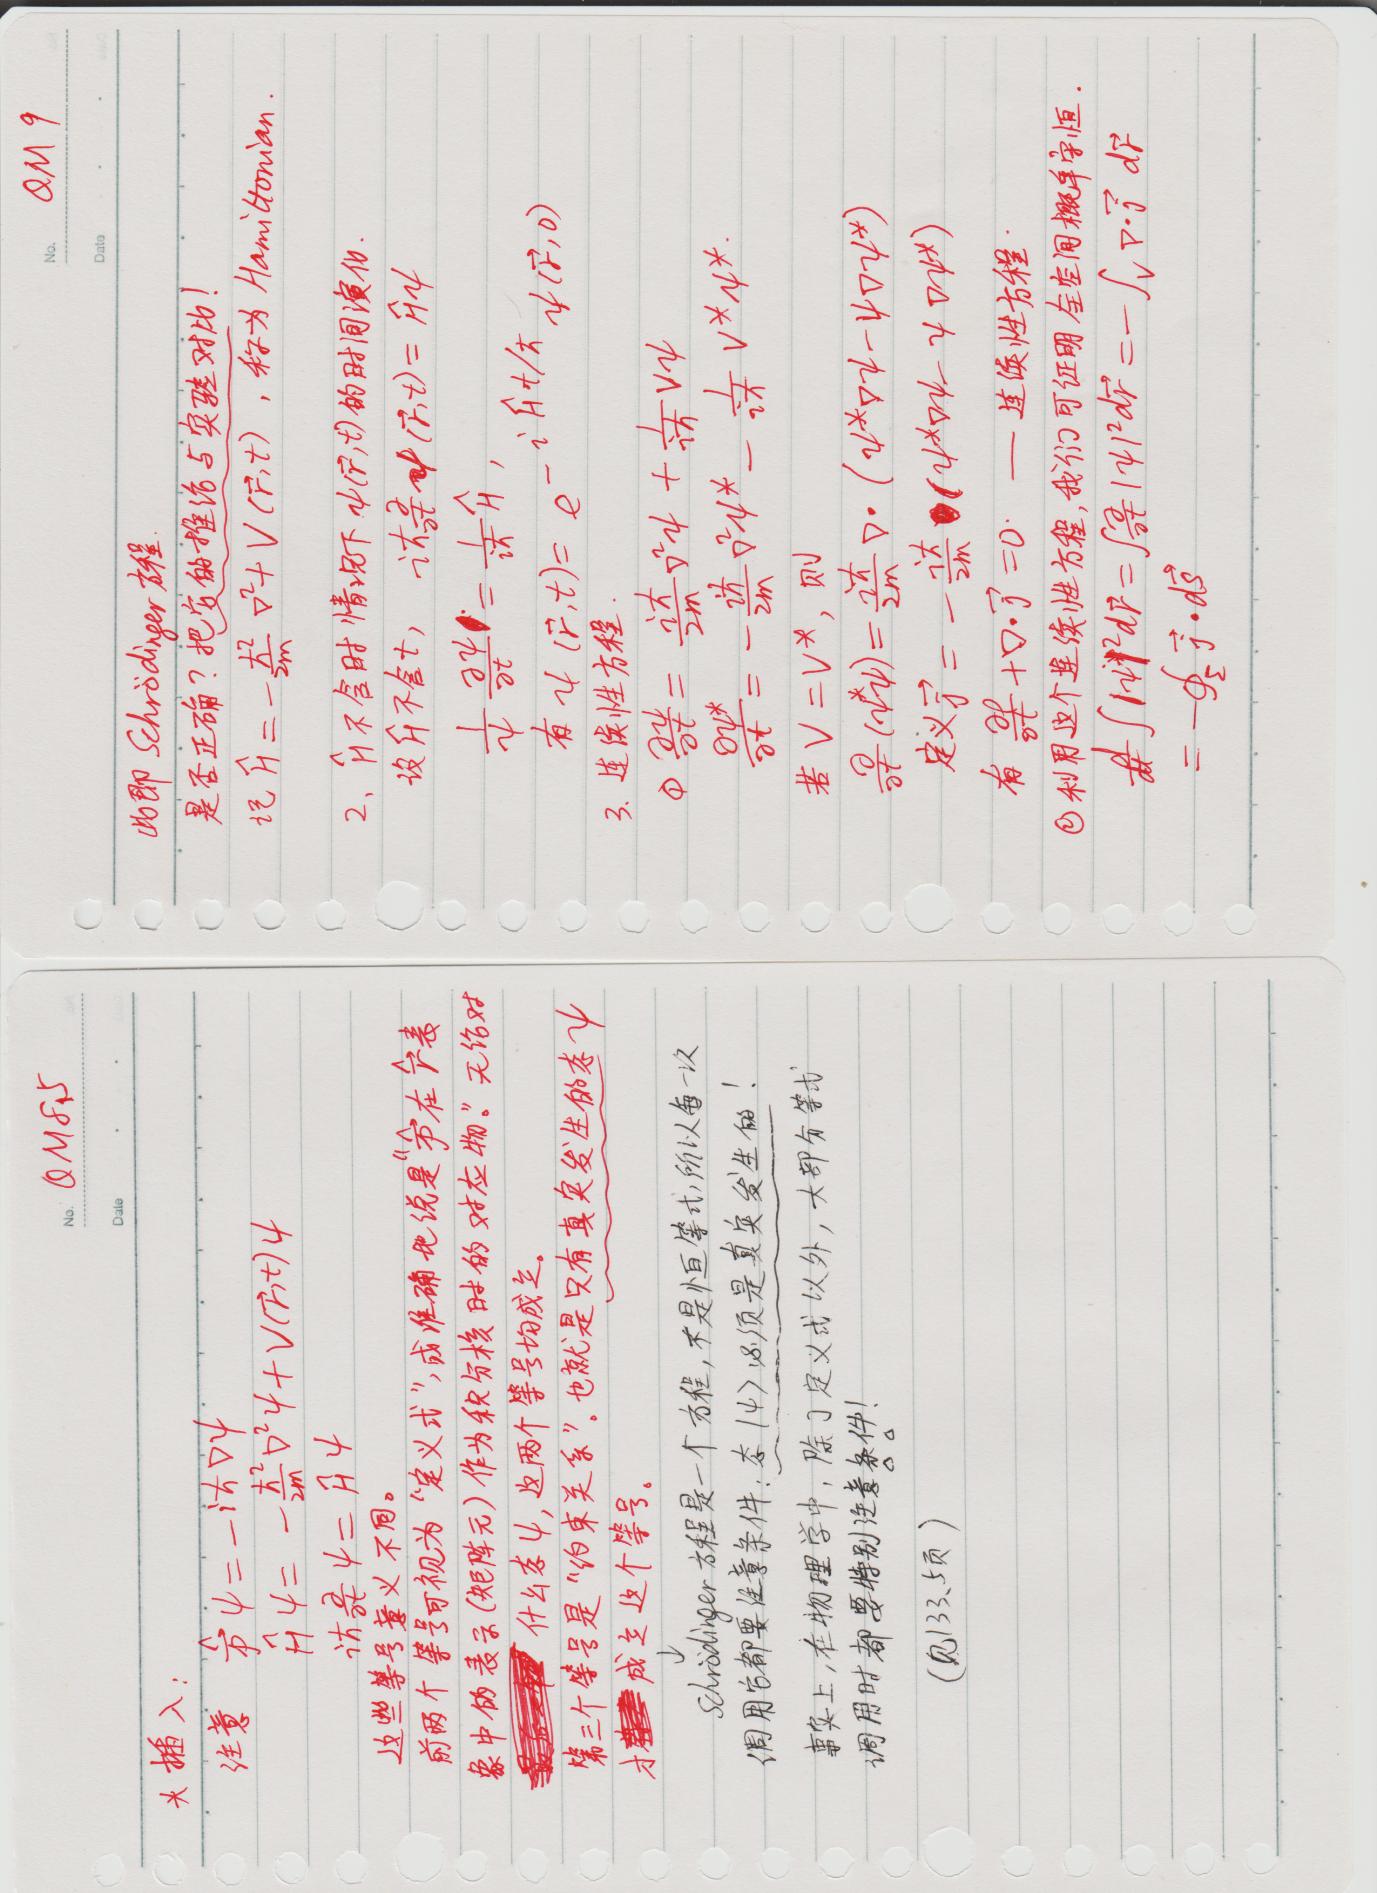 No. QM8.5
Date
* 插入:
注意 $\hat{\vec{p}}\psi = -i\hbar\nabla\psi$
$\hat{H}\psi = -\frac{\hbar^2}{2m}\nabla^2\psi + V(\vec{r},t)\psi$
$i\hbar\frac{\partial}{\partial t}\psi = \hat{H}\psi$
这些等号意义不同。
前两个等号可视为“定义式”,或准确地说是“$\hat{\vec{p}}$在$\hat{\vec{r}}$表
象中的表示(矩阵元)作为积分核时的对应物”。无论对
什么态ψ,这两个等号均成立。
第三个等号是“约束关系”。也就是只有真实发生的态ψ
才成立这个等号。
↓
Schrödinger方程是一个方程,不是恒等式,所以每一次
调用它都要注意条件:态|ψ〉必须是真实发生的!
事实上,在物理学中,除了定义式以外,大部分等式
调用时都要特别注意条件!
(见133.5页)
No. QM 9
Date
此即 Schrödinger方程.
是否正确?把它的推论与实验对比!
记 $\hat{H} = -\frac{\hbar^2}{2m}\nabla^2 + V(\vec{r},t)$ , 称为 Hamiltonian.
2、$\hat{H}$不含时情况下$\psi(\vec{r},t)$的时间演化.
设$\hat{H}$不含t, $i\hbar\frac{\partial}{\partial t}\psi(\vec{r},t) = \hat{H}\psi$
$\frac{1}{\psi}\frac{\partial\psi}{\partial t} = \frac{1}{i\hbar}\hat{H}$ ,
有 $\psi(\vec{r},t) = e^{-i\hat{H}t/\hbar}\psi(\vec{r},0)$
3. 连续性方程.
① $\frac{\partial\psi}{\partial t} = \frac{i\hbar}{2m}\nabla^2\psi + \frac{1}{i\hbar}V\psi$
$\frac{\partial\psi^*}{\partial t} = -\frac{i\hbar}{2m}\nabla^2\psi^* - \frac{1}{i\hbar}V^*\psi^*.$
若 $V = V^*$, 则
$\frac{\partial}{\partial t}(\psi^*\psi) = \frac{i\hbar}{2m}\nabla\cdot(\psi^*\nabla\psi - \psi\nabla\psi^*)$
定义$\vec{j} = -\frac{i\hbar}{2m}(\psi^*\nabla\psi - \psi\nabla\psi^*)$
有 $\frac{\partial\rho}{\partial t} + \nabla\cdot\vec{j} = 0.$ — 连续性方程.
② 利用这个连续性方程,我们可证明全空间概率守恒.
$\frac{d}{dt}\int|\psi|^2 d\vec{r} = \int\frac{\partial}{\partial t}|\psi|^2 d\vec{r} = -\int_V \nabla\cdot\vec{j}\, d\vec{r}$
$= -\oint_\Sigma \vec{j}\cdot d\vec{S}$